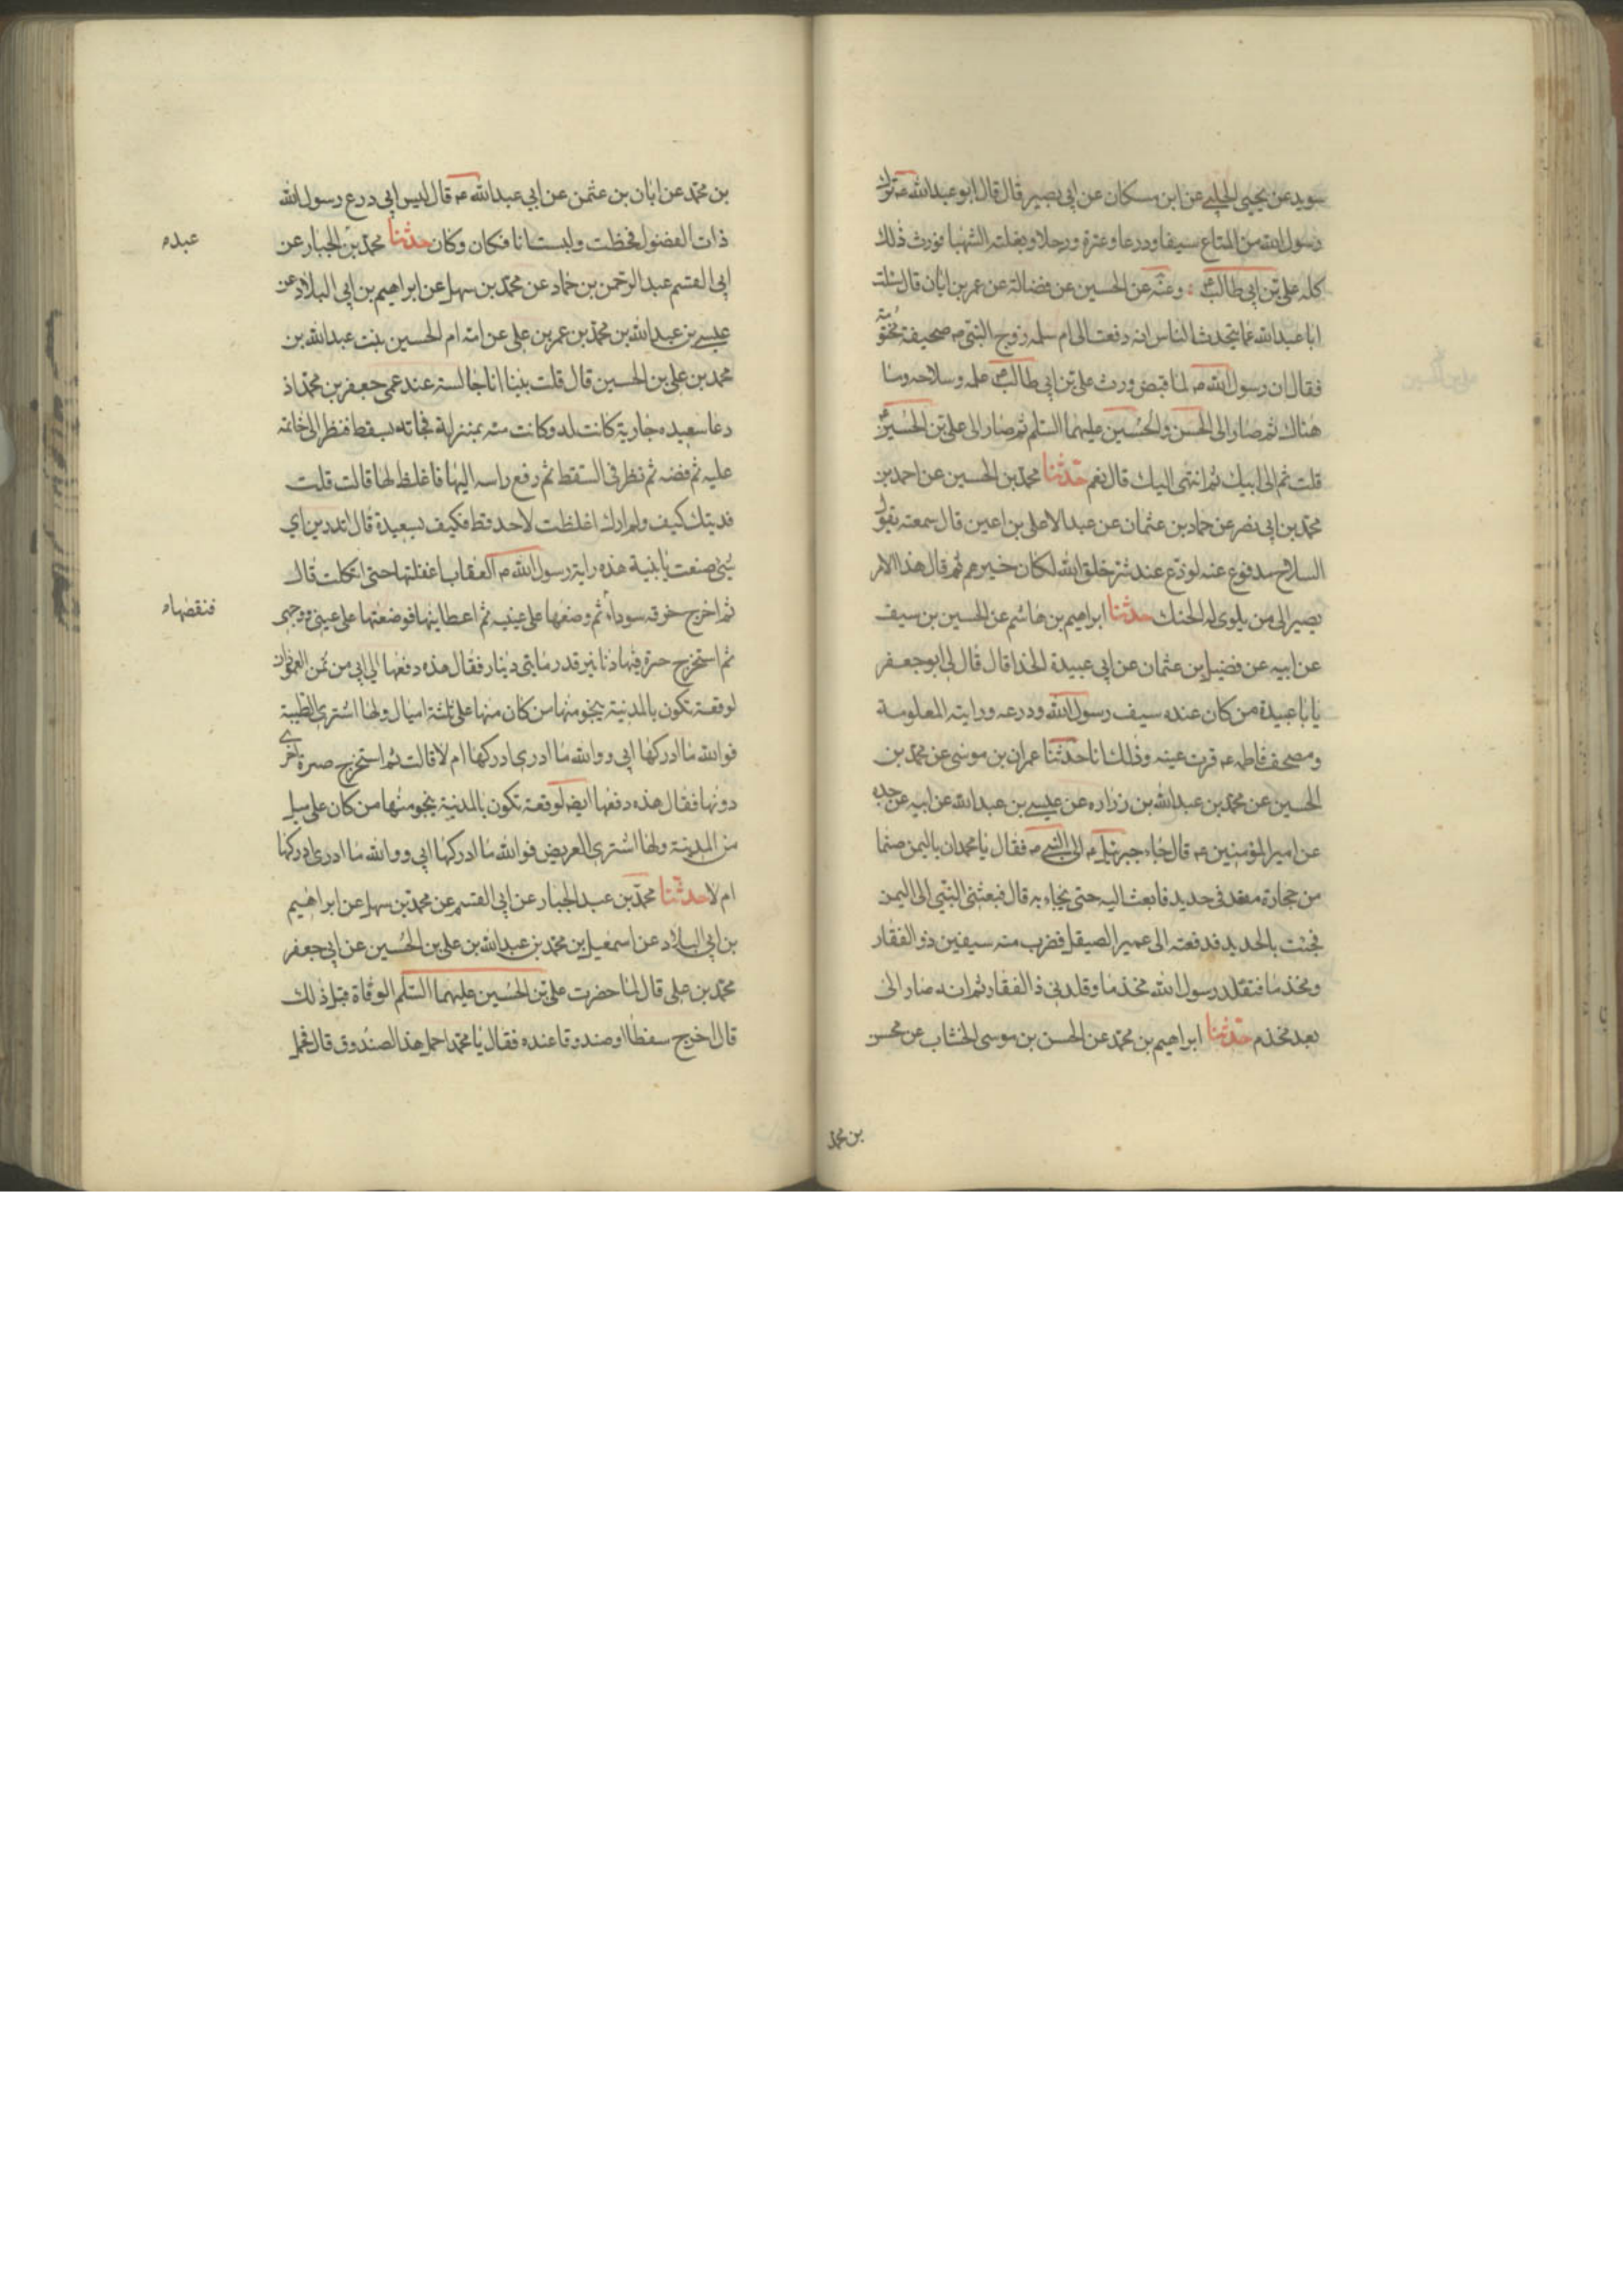 سويد عن يحيى الحلبي عن ابن مسكان عن ابي بصير قال قال ابو عبدالله ع ترك
رسول الله من المتاع سيفا ودرعا وعنزة ورحلا وبغلته الشهبا فورث ذلك
كله علي بن ابي طالب ع وعنه عن الحسين عن فضالة عن عمر بن ابان قال سئلت
ابا عبدالله عما يتحدث الناس انه دفعت الى ام سلمه زوج النبي ص صحيفة مختومة
فقال ان رسول الله ص لما قبض ورث علي بن ابي طالب ع علمه وسلاحه وما
هناك ثم صار الى الحسن والحسين عليهما السلم ثم صار الى علي بن الحسين ع
قلت ثم الى ابيك ثم انتهى اليك قال نعم حدثنا محمد بن الحسين عن احمد بن
محمد بن ابي نصر عن حماد بن عثمان عن عبد الاعلى بن اعين قال سمعته يقول
السلاح مدفوع عنه لو وضع عند شر خلق الله لكان خيرهم ثم قال هذا الامر
يصير الى من يلوى له الحنك حدثنا ابراهيم بن هاشم عن الحسين بن سيف
عن ابيه عن فضيل بن عثمان عن ابي عبيدة الحذا قال قال لي ابو جعفر
يا با عبيدة من كان عنده سيف رسول الله ودرعه ورايته المعلومة
ومصحف فاطمه ع قرت عينه وذلك انا حدثنا عمران بن موسى عن محمد بن
الحسين عن محمد بن عبدالله بن زراره عن عيسى بن عبدالله عن ابيه عن جده
عن امير المؤمنين ع قال جاء جبرئيل ع الى النبي ص فقال يا محمد ان باليمن صنما
من حجارة مقعد في حديد فابعث اليه حتى يجاء به قال فبعثني النبي الى اليمن
فجئت بالحديد فدفعته الى عمير الصيقل فضرب منه سيفين ذو الفقار
ومخذما فتقلد رسول الله مخذما وقلدني ذا الفقار ثم انه صار الى
بعد مخذم حدثنا ابراهيم بن محمد عن الحسن بن موسى الخشاب عن محسن
بن محمد
بن محمد عن ابان بن عثمن عن ابي عبدالله ع قال لبس ابي درع رسول الله
ذات الفضول فخطت ولبستها انا فكان وكان حدثنا محمد بن الجبار عن
عبد
ابي القسم عبد الرحمن بن حماد عن محمد بن سهل عن ابراهيم بن ابي البلاد عن
عيسى بن عبدالله بن محمد بن عمر بن علي عن امه ام الحسين بنت عبدالله بن
محمد بن علي بن الحسين قال قلت بينا انا جالسة عند عمي جعفر بن محمد اذ
دعا سعيده جارية كانت له وكانت منه بمنزلة فجاته بسقط فنظر الى خاتمه
عليه ثم فضه ثم نظر في السقط ثم رفع راسه اليها فاغلظ لها قالت قلت
فديتك كيف ولم ارك اغلظت لاحد قط فكيف بسعيدة قال اتدرين اي
شيء صنعت يا بنية هذه راية رسول الله ص العقاب اغفلتها حتى ائتكلت قال
ثم اخرج خرقه سوداء ثم وضعها على عينيه ثم اعطاينها فوضعتها على عيني ووجهي
فنقضها
ثم استخرج صرة فيها دنانير قدر مايتي دينار فقال هذه دفعها الي ابي من ثمن العمودان
لوقعة تكون بالمدنية ينجو منها من كان منها على ثلثة اميال ولها اشترى الطيبة
فوالله ما ادركها ابي ووالله ما ادري ادركها ام لا قالت ثم استخرج صرة اخرى
دونها فقال هذه دفعها ايض لوقعة تكون بالمدنية ينجو منها من كان على ميل
من المدينة ولها اشترى العريض فوالله ما ادركها ابي ووالله ما ادري ادركها
ام لا حدثنا محمد بن عبد الجبار عن ابي القسم عن محمد بن سهل عن ابراهيم
بن ابي البلاد عن اسمعيل بن محمد بن عبدالله بن علي بن الحسين عن ابي جعفر
محمد بن علي قال لما حضرت علي بن الحسين عليهما السلم الوفاة قبل ذلك
قال اخرج سفطا او صندوقا عنده فقال يا محمد احمل هذا الصندوق قال فحمل